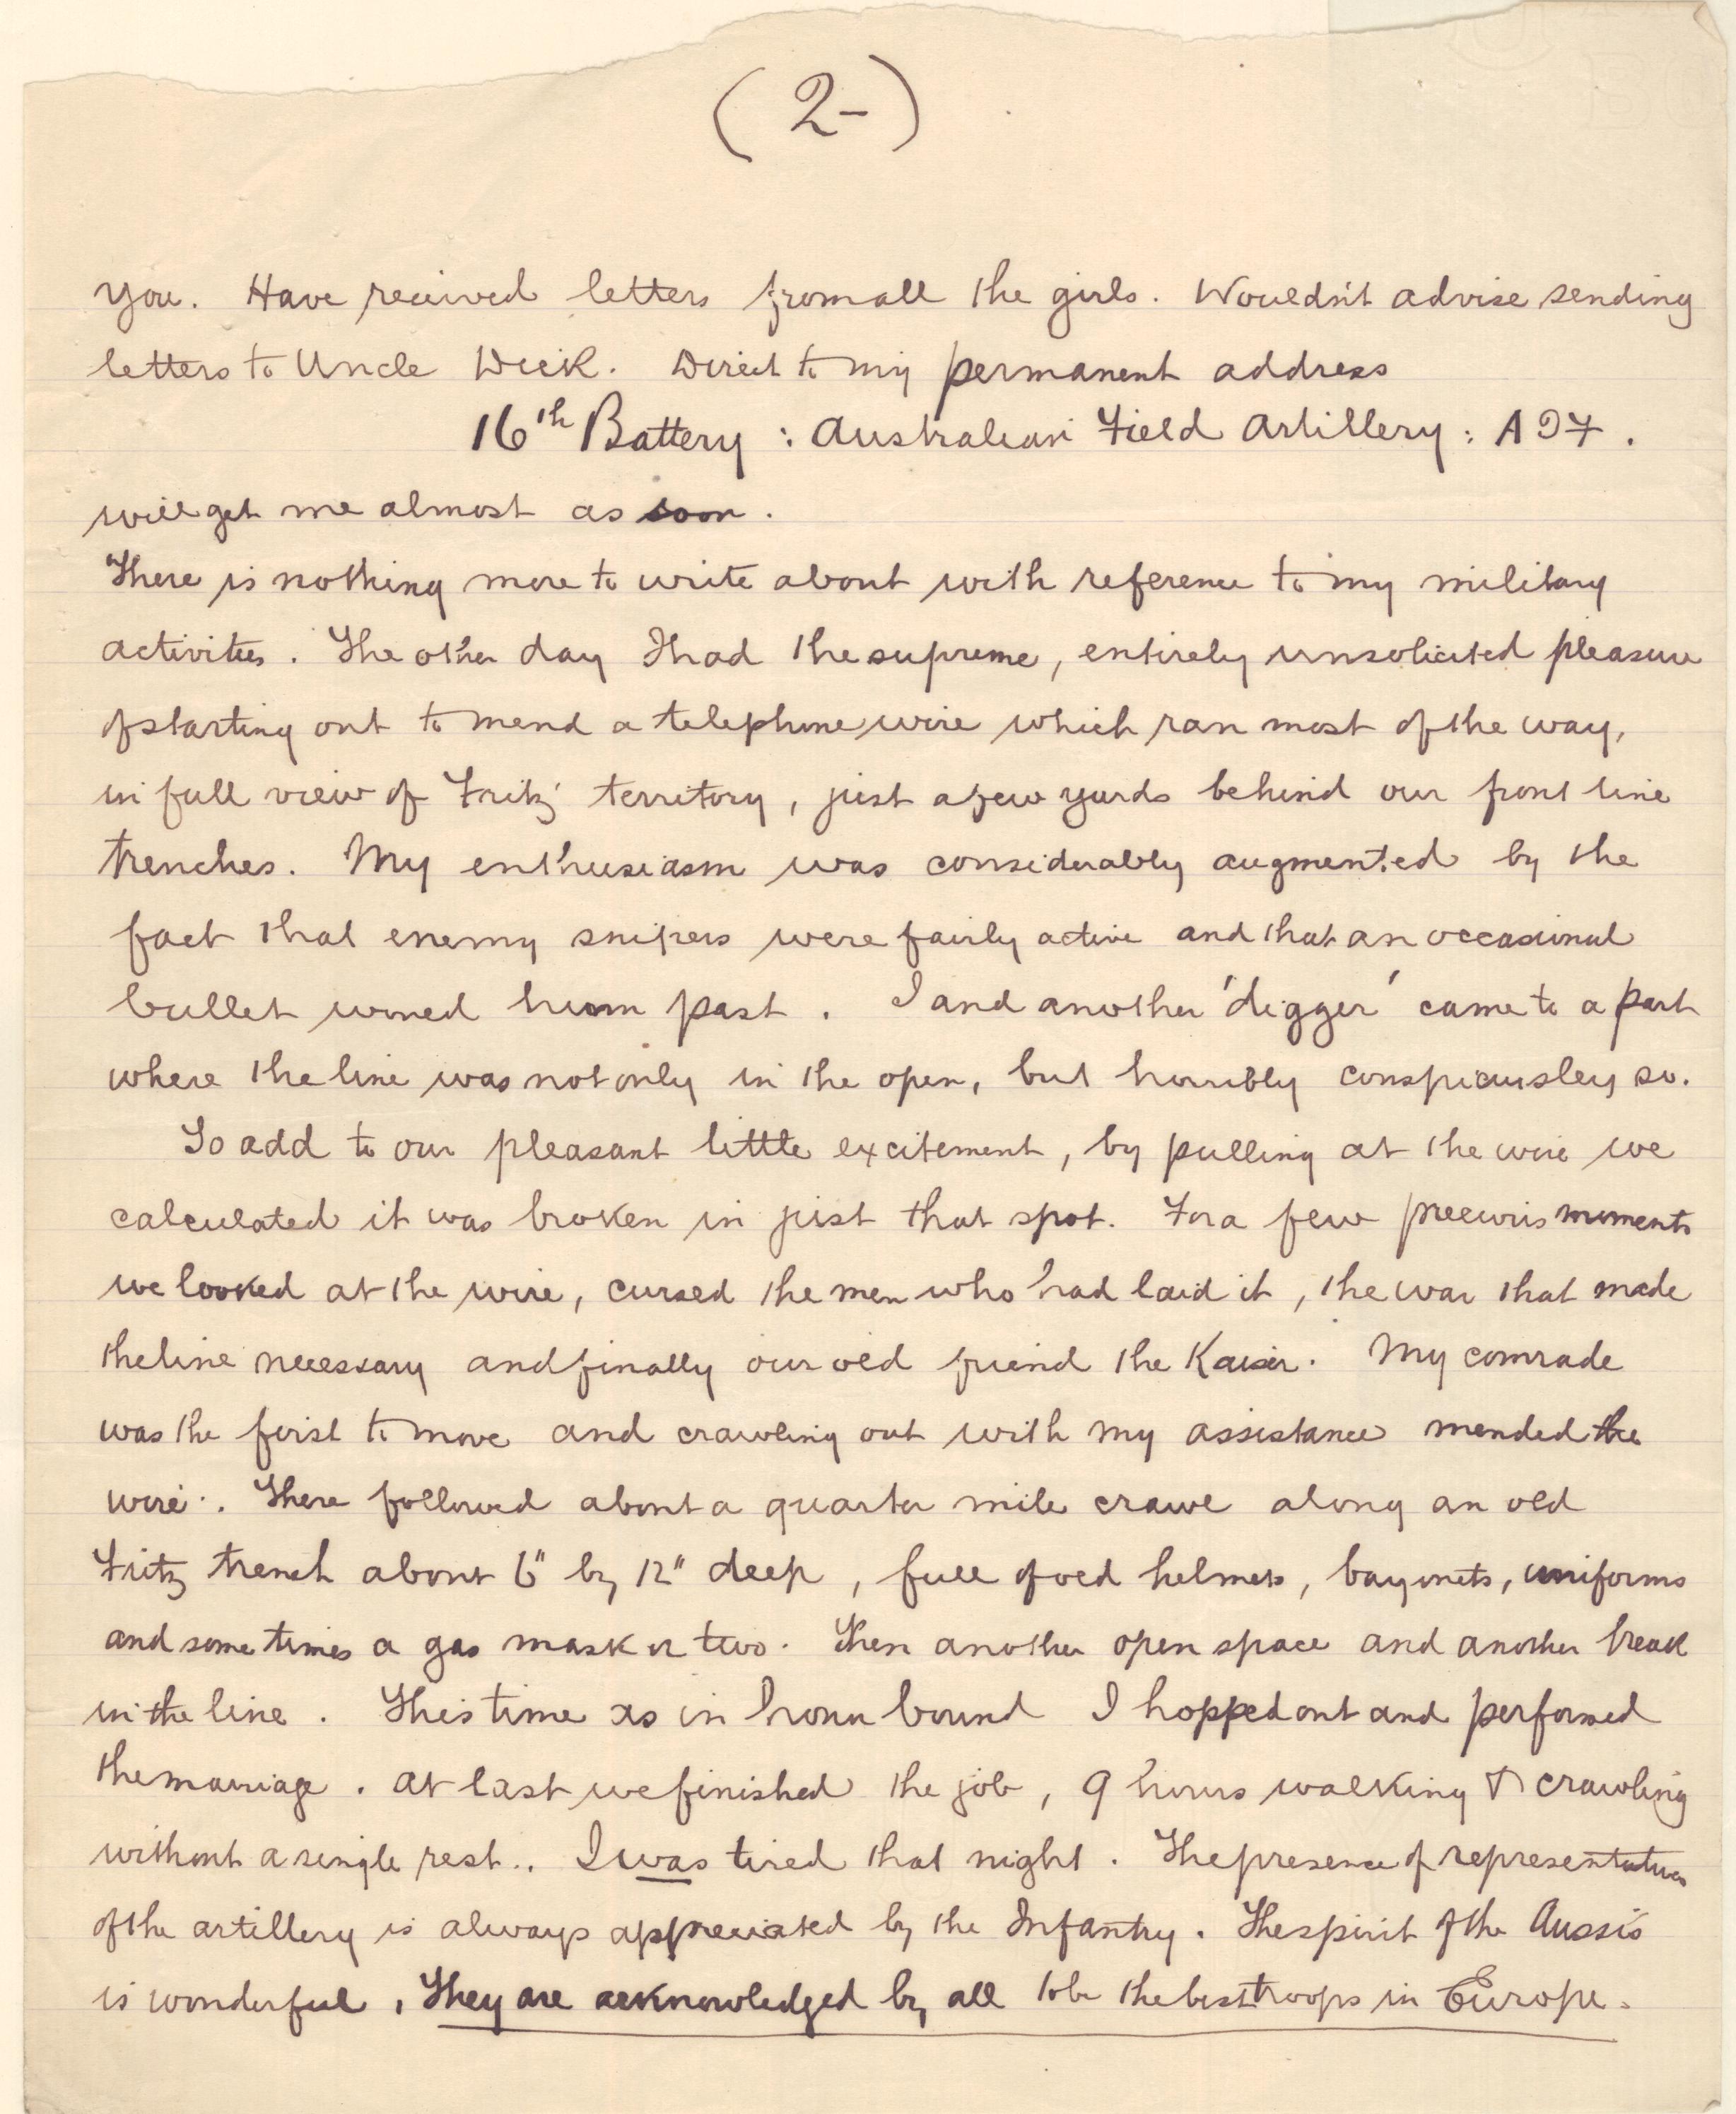 (2-)
you. Have received letters from all the girls. Wouldn't advise sending
letters to Uncle Dick. Direct to my permanent address
16th Battery : Australian Field Artillery : A I F .
will get me almost as soon.
There is nothing more to write about with reference to my military
activities. The other day I had the supreme, entirely unsolicited pleasure
of starting out to mend a telephone wire which ran most of the way,
in full view of Fritz' territory, just a few yards behind our front line
trenches. My enthusiasm was considerably augmented by the
fact that enemy snipers were fairly active and that an occasional
bullet would hum past. I and another 'digger' came to a part
where the line was not only in the open, but horribly conspicuously so.
To add to our pleasant little excitement, by pulling at the wire we
calculated it was broken in just that spot. For a few precious moments
we looked at the wire, cursed the men who had laid it, the war that made
the line necessary and finally our old friend the Kaiser. My comrade
was the first to move and crawling out with my assistance mended the
wire. There followed about a quarter mile crawl along an old
Fritz trench about 6" by 12" deep, full of old helmets, bayonets, uniforms
and sometimes a gas mask or two. Then another open space and another break
in the line. This time as in honour bound I hopped out and performed
the marriage. At last we finished the job, 9 hours walking & crawling
without a single rest.. I was tired that night. The presence of representatives
of the artillery is always appreciated by the Infantry. The spirit of the Aussis
is wonderful. They are acknowledged by all to be the best troops in Europe.